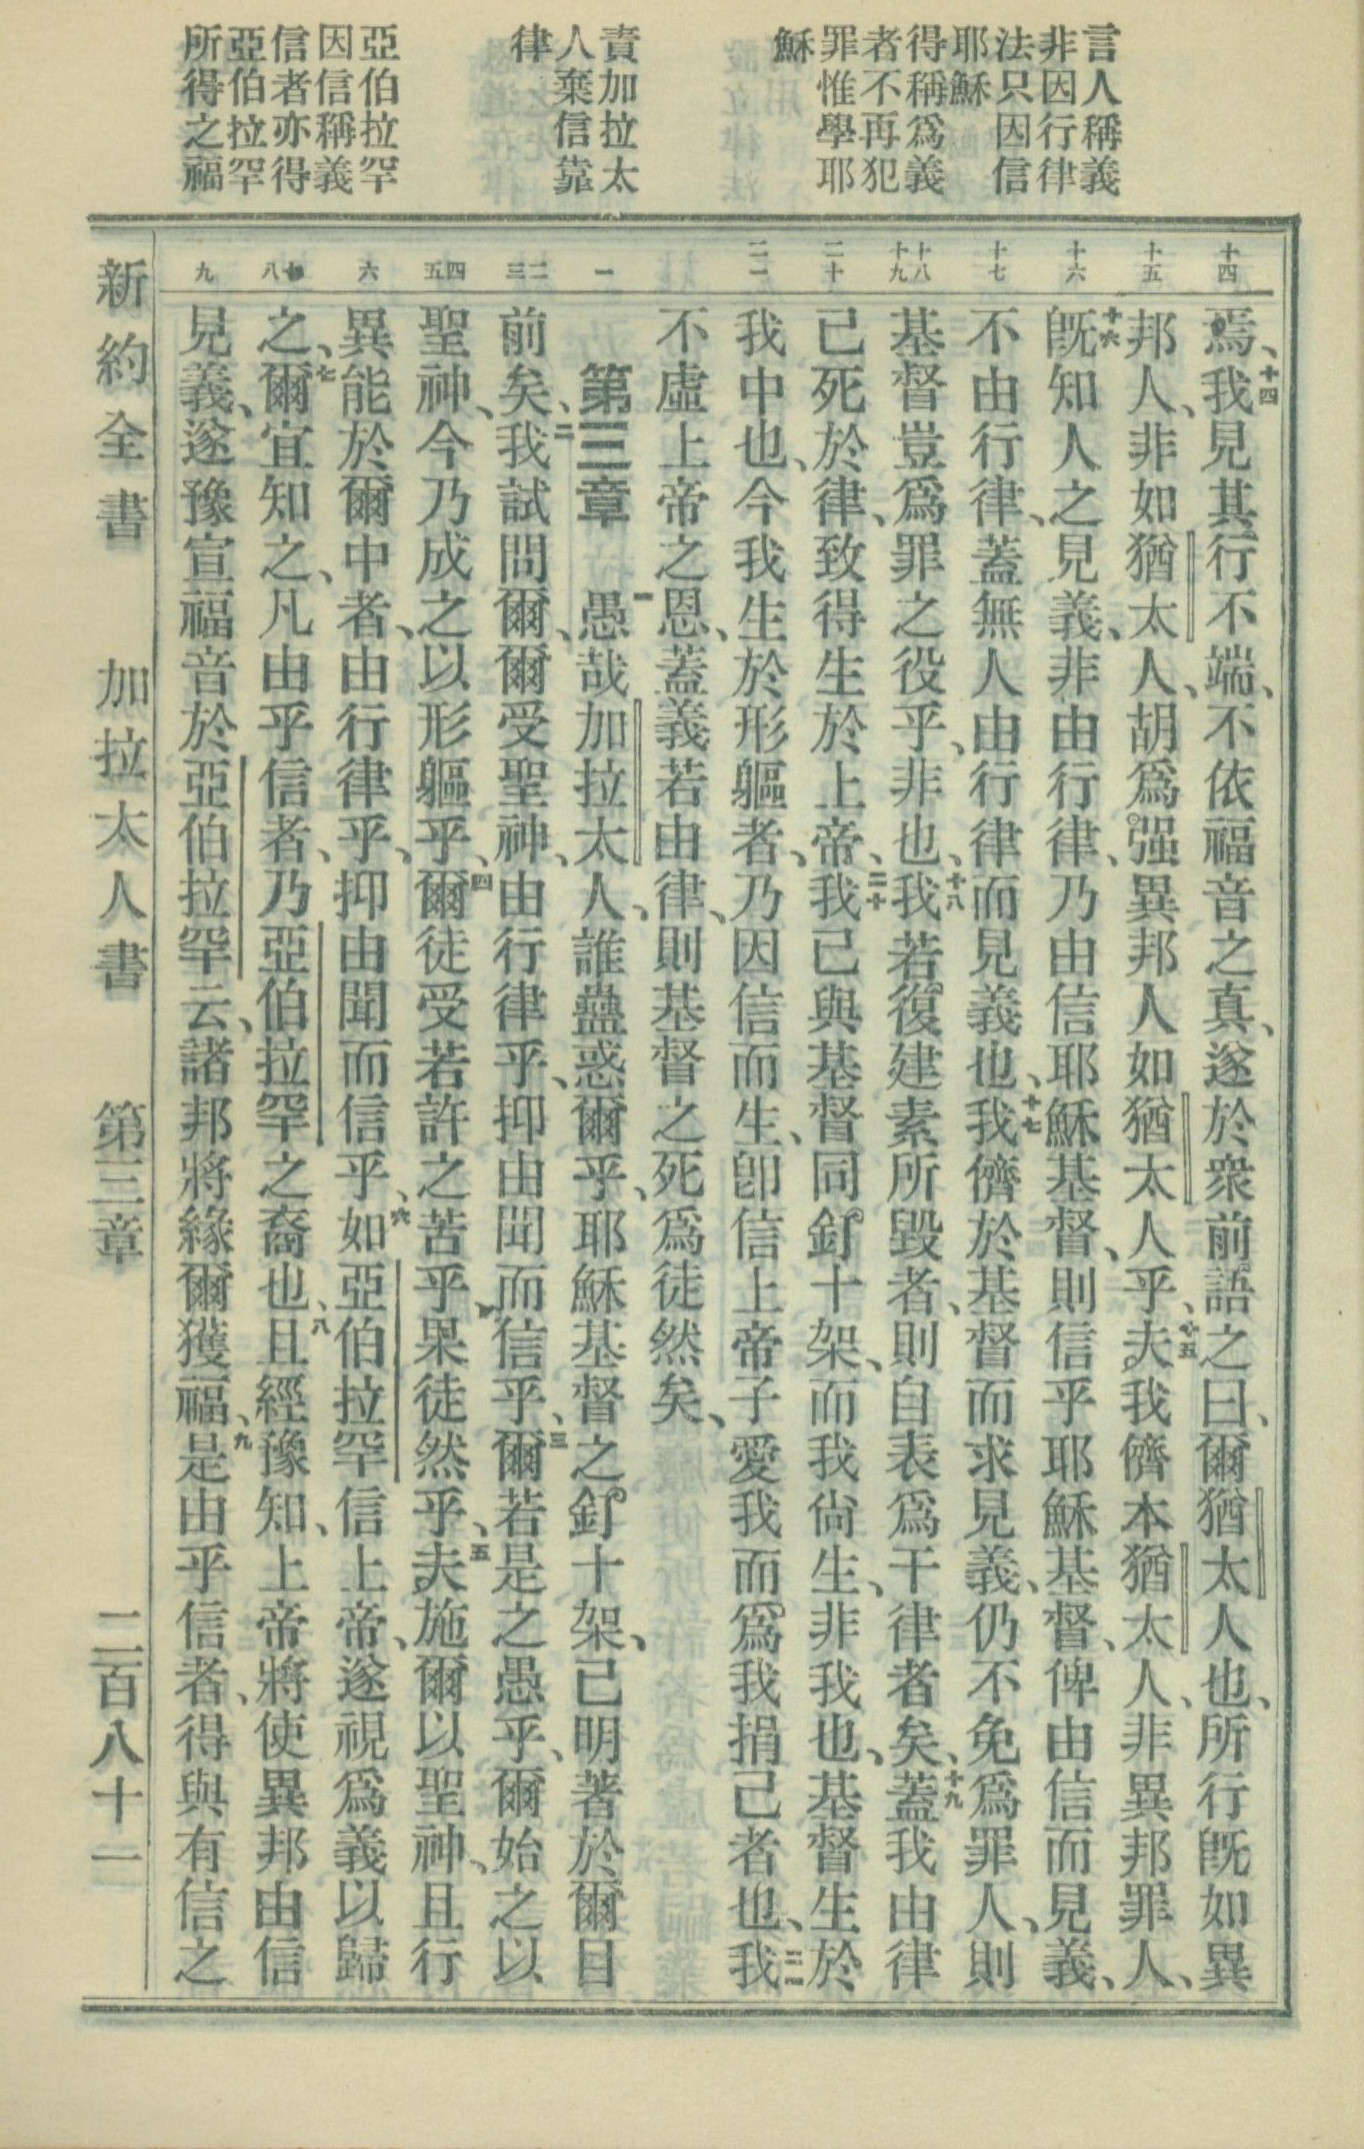 言人稱義
非因行律
法只因信
耶穌
得稱爲義
者不再犯
罪惟學耶
穌
責加拉太
人棄信靠
律
亞伯拉罕
因信稱義
信者亦得
亞伯拉罕
所得之福
十四
十五
十六
十七
十八
十九
二十
二一
一
二
三
四
五
六
七
八
九
焉、十四我見其行不端、不依福音之真、遂於衆前語之曰、爾猶太人也、所行旣如異
邦人、非如猶太人、胡爲强異邦人如猶太人乎、十五夫我儕本猶太人、非異邦罪人、
十六旣知人之見義、非由行律、乃由信耶穌基督、則信乎耶穌基督、俾由信而見義、
不由行律、蓋無人由行律而見義也、十七我儕於基督而求見義、仍不免爲罪人、則
基督豈爲罪之役乎、非也、十八我若復建素所毀者、則自表爲干律者矣、十九蓋我由律
己死於律、致得生於上帝、二十我已與基督同釘十架、而我尙生、非我也、基督生於
我中也、今我生於形軀者、乃因信而生、卽信上帝子愛我而爲我捐己者也、二一我
不虛上帝之恩、蓋義若由律、則基督之死爲徒然矣、
第三章 一愚哉加拉太人、誰蠱惑爾乎、耶穌基督之釘十架、已明著於爾目
前矣、二我試問爾、爾受聖神、由行律乎、抑由聞而信乎、三爾若是之愚乎、爾始之以
聖神、今乃成之以形軀乎、四爾徒受若許之苦乎、果徒然乎、五夫施爾以聖神、且行
異能於爾中者、由行律乎、抑由聞而信乎、六如亞伯拉罕信上帝、遂視爲義以歸
之、七爾宜知之、凡由乎信者、乃亞伯拉罕之裔也、八且經豫知、上帝將使異邦由信
見義、遂豫宣福音於亞伯拉罕云、諸邦將緣爾獲福、九是由乎信者、得與有信之
新約全書 加拉太人書 第三章 二百八十一